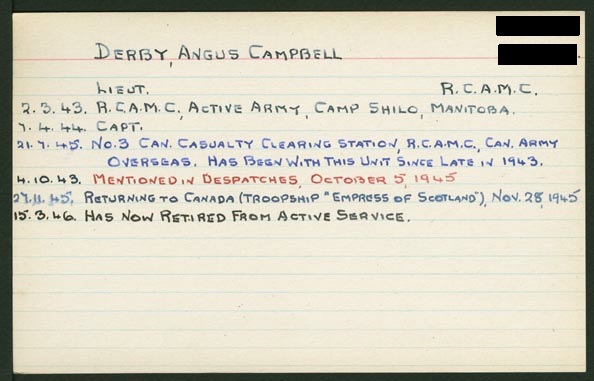 DERBY, ANGUS CAMPBELL
LIEUT. R.C.A.M.C.
2.3.43. R.C.A.M.C., ACTIVE ARMY, CAMP SHILO, MANITOBA.
7.4.44. CAPT.
21.7.45. NO.3 CAN. CASUALTY CLEARING STATION, R.C.A.M.C., CAN. ARMY
OVERSEAS. HAS BEEN WITH THIS UNIT SINCE LATE IN 1943.
4.10.43. MENTIONED IN DESPATCHES, OCTOBER 5, 1945
27.11.45. RETURNING TO CANADA (TROOPSHIP "EMPRESS OF SCOTLAND"), NOV. 28, 1945
15.3.46. HAS NOW RETIRED FROM ACTIVE SERVICE.